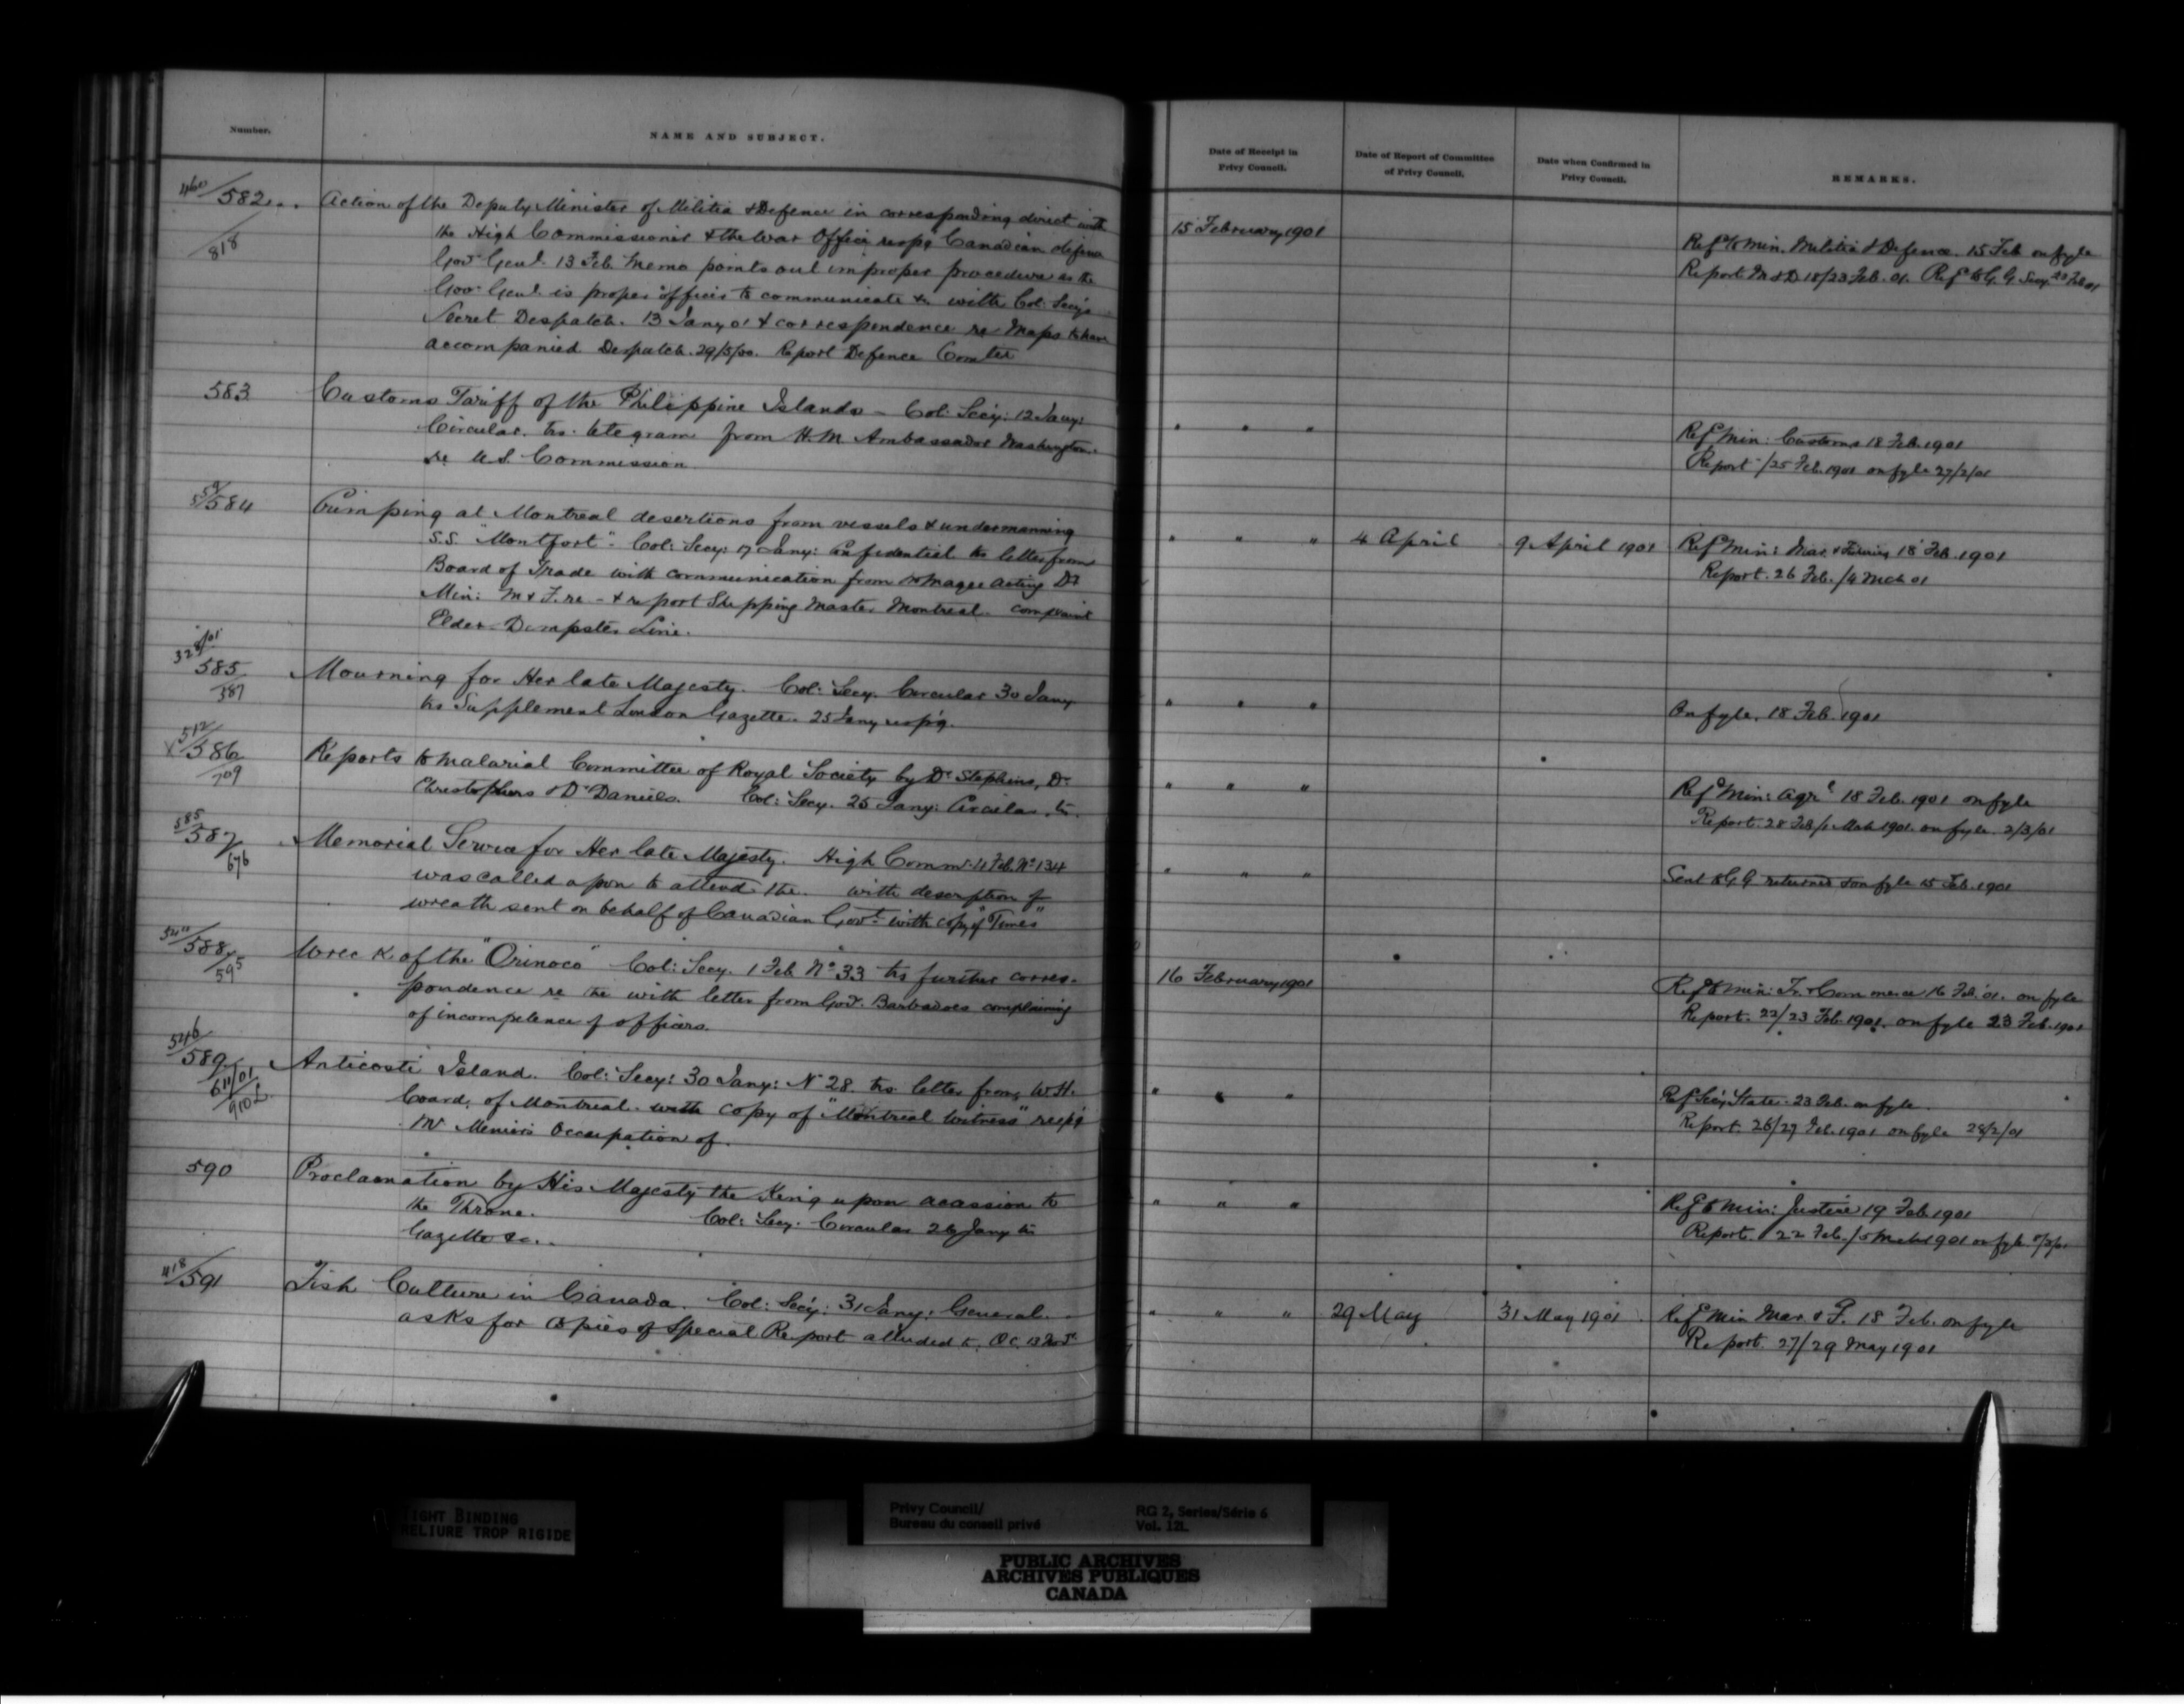 Number.
NAME AND SUBJECT.
Date of Receipt in
Privy Council.
Date of Report of Committee
of Privy Council.
Date when Confirmed in
Privy Council.
REMARKS.
460/582
/818
Action of the Deputy Minister of Militia & Defence in corresponding direct with
the High Commissioner & the War Office resp'g Canadian defence
Gov. Genl. 13 Feb. Memo points out improper procedure as the
Gov. Genl. is proper officer to communicate &c with Col: Secy's
Secret Despatch. 13 Jany 01 & correspondence re Maps to have
accompanied Despatch. 29/5/00. Report Defence Comtee
15 February 1901
Refd to Min. Militia & Defence. 15 Feb on fyle
Report M & D 18/23 Feb. 01. Ref to G. G. Secy. 23 Feb 01
583
Customs Tariff of the Philippine Islands - Col: Secy: 12 Jany:
Circular. trs. telegram from H.M Ambassador Washington
re U.S. Commission
" " "
Refd Min: Customs 18 Feb. 1901
Report /25 Feb. 1901 on fyle 27/2/01
584
Crimping at Montreal desertions from vessels & undermanning
S.S. "Montfort" - Col: Secy: 17 Jany: Confidential trs letter from
Board of Trade with communication from Mr Magee acting Dy
Min: M & F. re - & report Shipping Master Montreal. complaint
Elder Dempster Line.
" " "
4 April
9 April 1901
Refd Min: Mar. & Fisheries 18 Feb. 1901
Report. 26 Feb. /4 Mch 01
585
/587
Mourning for Her late Majesty. Col: Secy. Circular 30 Jany
trs Supplement London Gazette. 25 Jany resp'g.
" " "
On fyle. 18 Feb. 1901
512/586
/709
Reports to Malarial Committee of Royal Society by Dr Stephens, Dr
Christophers & Dr Daniels. Col: Secy. 25 Jany: Circular trs.
" " "
Refd Min: Agrl 18 Feb. 1901 on fyle
Report. 28 Feb/1 Mch 1901. on fyle. 2/3/01
585/587
/676
Memorial Service for Her late Majesty. High Commr. 4 Feb. No 134
was called upon to attend the. with description of
wreath sent on behalf of Canadian Govt. with copy of "Times"
" " "
Sent to G G returned & on fyle 15 Feb. 1901
/588
/595
Wreck of the "Orinoco" Col: Secy. 1 Feb No 33 trs further corres-
pondence re the with letter from Govr. Barbadoes complaining
of incompetence of officers.
16 February 1901
Refd to Min: Tr. & Commerce 16 Feb. 01. on fyle
Report. 22/23 Feb. 1901. on fyle 23 Feb. 1901
546/589
611/01
/910 L.
Anticosti Island. Col: Secy: 30 Jany: No 28 trs. letter from W. H.
Coard, of Montreal. with copy of "Montreal Witness" resp'g
Mr Menier's Occupation of.
" " "
Refd Secy State. 23 Feb. on fyle.
Report. 26/27 Feb. 1901 on fyle 28/2/01
590
Proclamation by His Majesty the King upon acession to
the Throne. Col: Secy. Circular 26 Jany trs
Gazette &c.
" " "
Refd to Min: Justice 19 Feb 1901
Report. 22 Feb. /5 Mch 1901 on fyle
418/591
Fish Culture in Canada. Col: Secy: 31 Jany: General.
asks for copies of Special Report alluded to. O.C. 13 Novr.
" " "
29 May
31 May 1901
Refd Min Mar & F. 18 Feb. on fyle
Report. 27/29 May 1901
TIGHT BINDING
RELIURE TROP RIGIDE
Privy Council/
Bureau du conseil privé
RG 2, Series/Série 6
Vol. 121.
PUBLIC ARCHIVES
ARCHIVES PUBLIQUES
CANADA